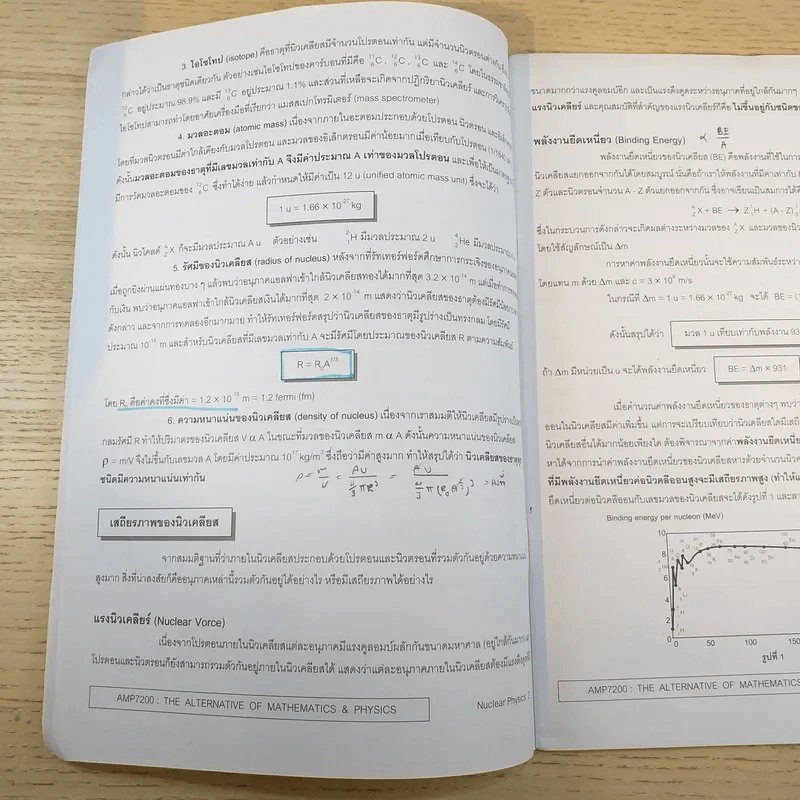 3. ไอโซโทป (isotope) คือธาตุที่นิวเคลียสมีจำนวนโปรตอนเท่ากัน แต่มีจำนวนนิวตรอนต่างกัน
กล่าวได้ว่าเป็นธาตุชนิดเดียวกัน ตัวอย่างเช่นไอโซโทปของคาร์บอนที่มีคือ ¹¹₆C, ¹²₆C, ¹³₆C และ ¹⁴₆C
¹²₆C อยู่ประมาณ 98.9% และมี ¹³₆C อยู่ประมาณ 1.1% และส่วนที่เหลือจะเกิดจากปฏิกิริยานิวเคลียร์
ไอโซโทปสามารถทำโดยอาศัยเครื่องมือที่เรียกว่า แมสสเปกโทรมิเตอร์ (mass spectrometer)
4. มวลอะตอม (atomic mass) เนื่องจากภายในอะตอมประกอบด้วยโปรตอน นิวตรอน
โดยที่มวลนิวตรอนมีค่าใกล้เคียงกับมวลโปรตอน และมวลของอิเล็กตรอนมีค่าน้อยมากเมื่อเทียบกับโปรตอน
ดังนั้นมวลอะตอมของธาตุที่มีเลขมวลเท่ากับ A จึงมีค่าประมาณ A เท่าของมวลโปรตอน
มีการวัดมวลอะตอมของ ¹²₆C ซึ่งทำได้ง่าย แล้วกำหนดให้มีค่าเป็น 12 u (unified atomic mass unit) ซึ่งจะได้ว่า
1 u = 1.66 × 10⁻²⁷ kg
ดังนั้น นิวไคลด์ ᴬ_ZX ก็จะมีมวลประมาณ A u ตัวอย่างเช่น ²₁H มีมวลประมาณ 2 u ⁴₂He มีมวลประมาณ
5. รัศมีของนิวเคลียส (radius of nucleus) หลังจากที่รัทเทอร์ฟอร์ดศึกษาการกระเจิงของอนุภาคแอลฟา
เมื่อถูกยิงผ่านแผ่นทองบาง ๆ แล้วพบว่าอนุภาคแอลฟาเข้าใกล้นิวเคลียสทองได้มากที่สุด 3.2 × 10⁻¹⁴ m
กับเงิน พบว่าอนุภาคแอลฟาเข้าใกล้นิวเคลียสเงินได้มากที่สุด 2 × 10⁻¹⁴ m แสดงว่านิวเคลียสของธาตุต้องมีรัศมี
ดังกล่าว และจากการทดลองอีกมากมาย ทำให้รัทเทอร์ฟอร์ดสรุปว่านิวเคลียสของธาตุมีรูปร่างเป็นทรงกลม โดยมีรัศมี
ประมาณ 10⁻¹⁴ m และสำหรับนิวเคลียสที่มีเลขมวลเท่ากับ A จะมีรัศมีโดยประมาณของนิวเคลียส R ตามความสัมพันธ์
R = R₀A^1/3
โดย R₀ คือค่าคงที่ซึ่งมีค่า = 1.2 × 10⁻¹⁵ m = 1.2 fermi (fm)
6. ความหนาแน่นของนิวเคลียส (density of nucleus) เนื่องจากเราสมมติให้นิวเคลียสมีรูปร่างเป็น
กลมรัศมี R ทำให้ปริมาตรของนิวเคลียส V α A ในขณะที่มวลของนิวเคลียส m α A ดังนั้นความหนาแน่นของนิวเคลียส
ρ = m/V จึงไม่ขึ้นกับเลขมวล A โดยมีค่าประมาณ 10¹⁷ kg/m³ ซึ่งถือว่ามีค่าสูงมาก ทำให้สรุปได้ว่า นิวเคลียสของธาตุทุก
ชนิดมีความหนาแน่นเท่ากัน
ρ = m/V = Au / 4/3 πR³ = Au / 4/3 π(R₀A^1/3)³ = คงที่
เสถียรภาพของนิวเคลียส
จากสมมติฐานที่ว่าภายในนิวเคลียสประกอบด้วยโปรตอนและนิวตรอนที่รวมตัวกันอยู่ด้วยความหนาแน่น
สูงมาก สิ่งที่น่าสงสัยก็คืออนุภาคเหล่านี้รวมตัวกันอยู่ได้อย่างไร หรือมีเสถียรภาพได้อย่างไร
แรงนิวเคลียร์ (Nuclear Vorce)
เนื่องจากโปรตอนภายในนิวเคลียสแต่ละอนุภาคมีแรงคูลอมบ์ผลักกันขนาดมหาศาล (อยู่ใกล้กันมาก)
โปรตอนและนิวตรอนก็ยังสามารถรวมตัวกันอยู่ภายในนิวเคลียสได้ แสดงว่าแต่ละอนุภาคภายในนิวเคลียสต้องมีแรงดึงดูด
AMP7200 : THE ALTERNATIVE OF MATHEMATICS & PHYSICS
Nuclear Physics 2
ขนาดมากกว่าแรงคูลอมบ์อีก และเป็นแรงดึงดูดระหว่างอนุภาคที่อยู่ใกล้กันมากๆ
แรงนิวเคลียร์ และคุณสมบัติที่สำคัญของแรงนิวเคลียร์ก็คือ ไม่ขึ้นอยู่กับชนิด
พลังงานยึดเหนี่ยว (Binding Energy) α BE/A
พลังงานยึดเหนี่ยวของนิวเคลียส (BE) คือพลังงานที่ใช้ในการ
นิวเคลียสแยกออกจากกันได้โดยสมบูรณ์ นั่นคือถ้าเราให้พลังงานที่มีค่าเท่ากับ
Z ตัวและนิวตรอนจำนวน A - Z ตัวแยกออกจากกัน ซึ่งอาจเขียนเป็นสมการได้
ᴬ_ZX + BE → Z¹₁H + (A - Z)
ซึ่งในกระบวนการดังกล่าวจะเกิดผลต่างระหว่างมวลของ ᴬ_ZX และมวลของ
โดยใช้สัญลักษณ์เป็น Δm
การหาค่าพลังงานยึดเหนี่ยวนั้นจะใช้ความสัมพันธ์ระหว่าง
โดยแทน m ด้วย Δm และ c = 3 × 10⁸ m/s
ในกรณีที่ Δm = 1 u = 1.66 × 10⁻²⁷ kg จะได้ BE =
ดังนั้นสรุปได้ว่า มวล 1 u เทียบเท่ากับพลังงาน 93
ถ้า Δm มีหน่วยเป็น u จะได้พลังงานยึดเหนี่ยว BE = Δm × 931
เมื่อคำนวณค่าพลังงานยึดเหนี่ยวของนิวเคลียสของธาตุต่างๆ พบว่า
ออนในนิวเคลียสมีค่าเพิ่มขึ้น แต่การจะเปรียบเทียบว่านิวเคลียสใดมี
นิวเคลียสอื่นได้มากน้อยเพียงใด ต้องพิจารณาจากค่าพลังงานยึดเหนี่ยว
หาได้จากการนำค่าพลังงานยึดเหนี่ยวของนิวเคลียสหารด้วยจำนวน
ที่มีพลังงานยึดเหนี่ยวต่อนิวคลีออนสูงจะมีเสถียรภาพสูง
ยึดเหนี่ยวต่อนิวคลีออนกับเลขมวลของนิวเคลียสจะได้ดังรูปที่ 1
Binding energy per nucleon (MeV)
10
8
6
4
2
0
0 50 100 150
รูปที่ 1
AMP7200 : THE ALTERNATIVE OF MATHEMATICS